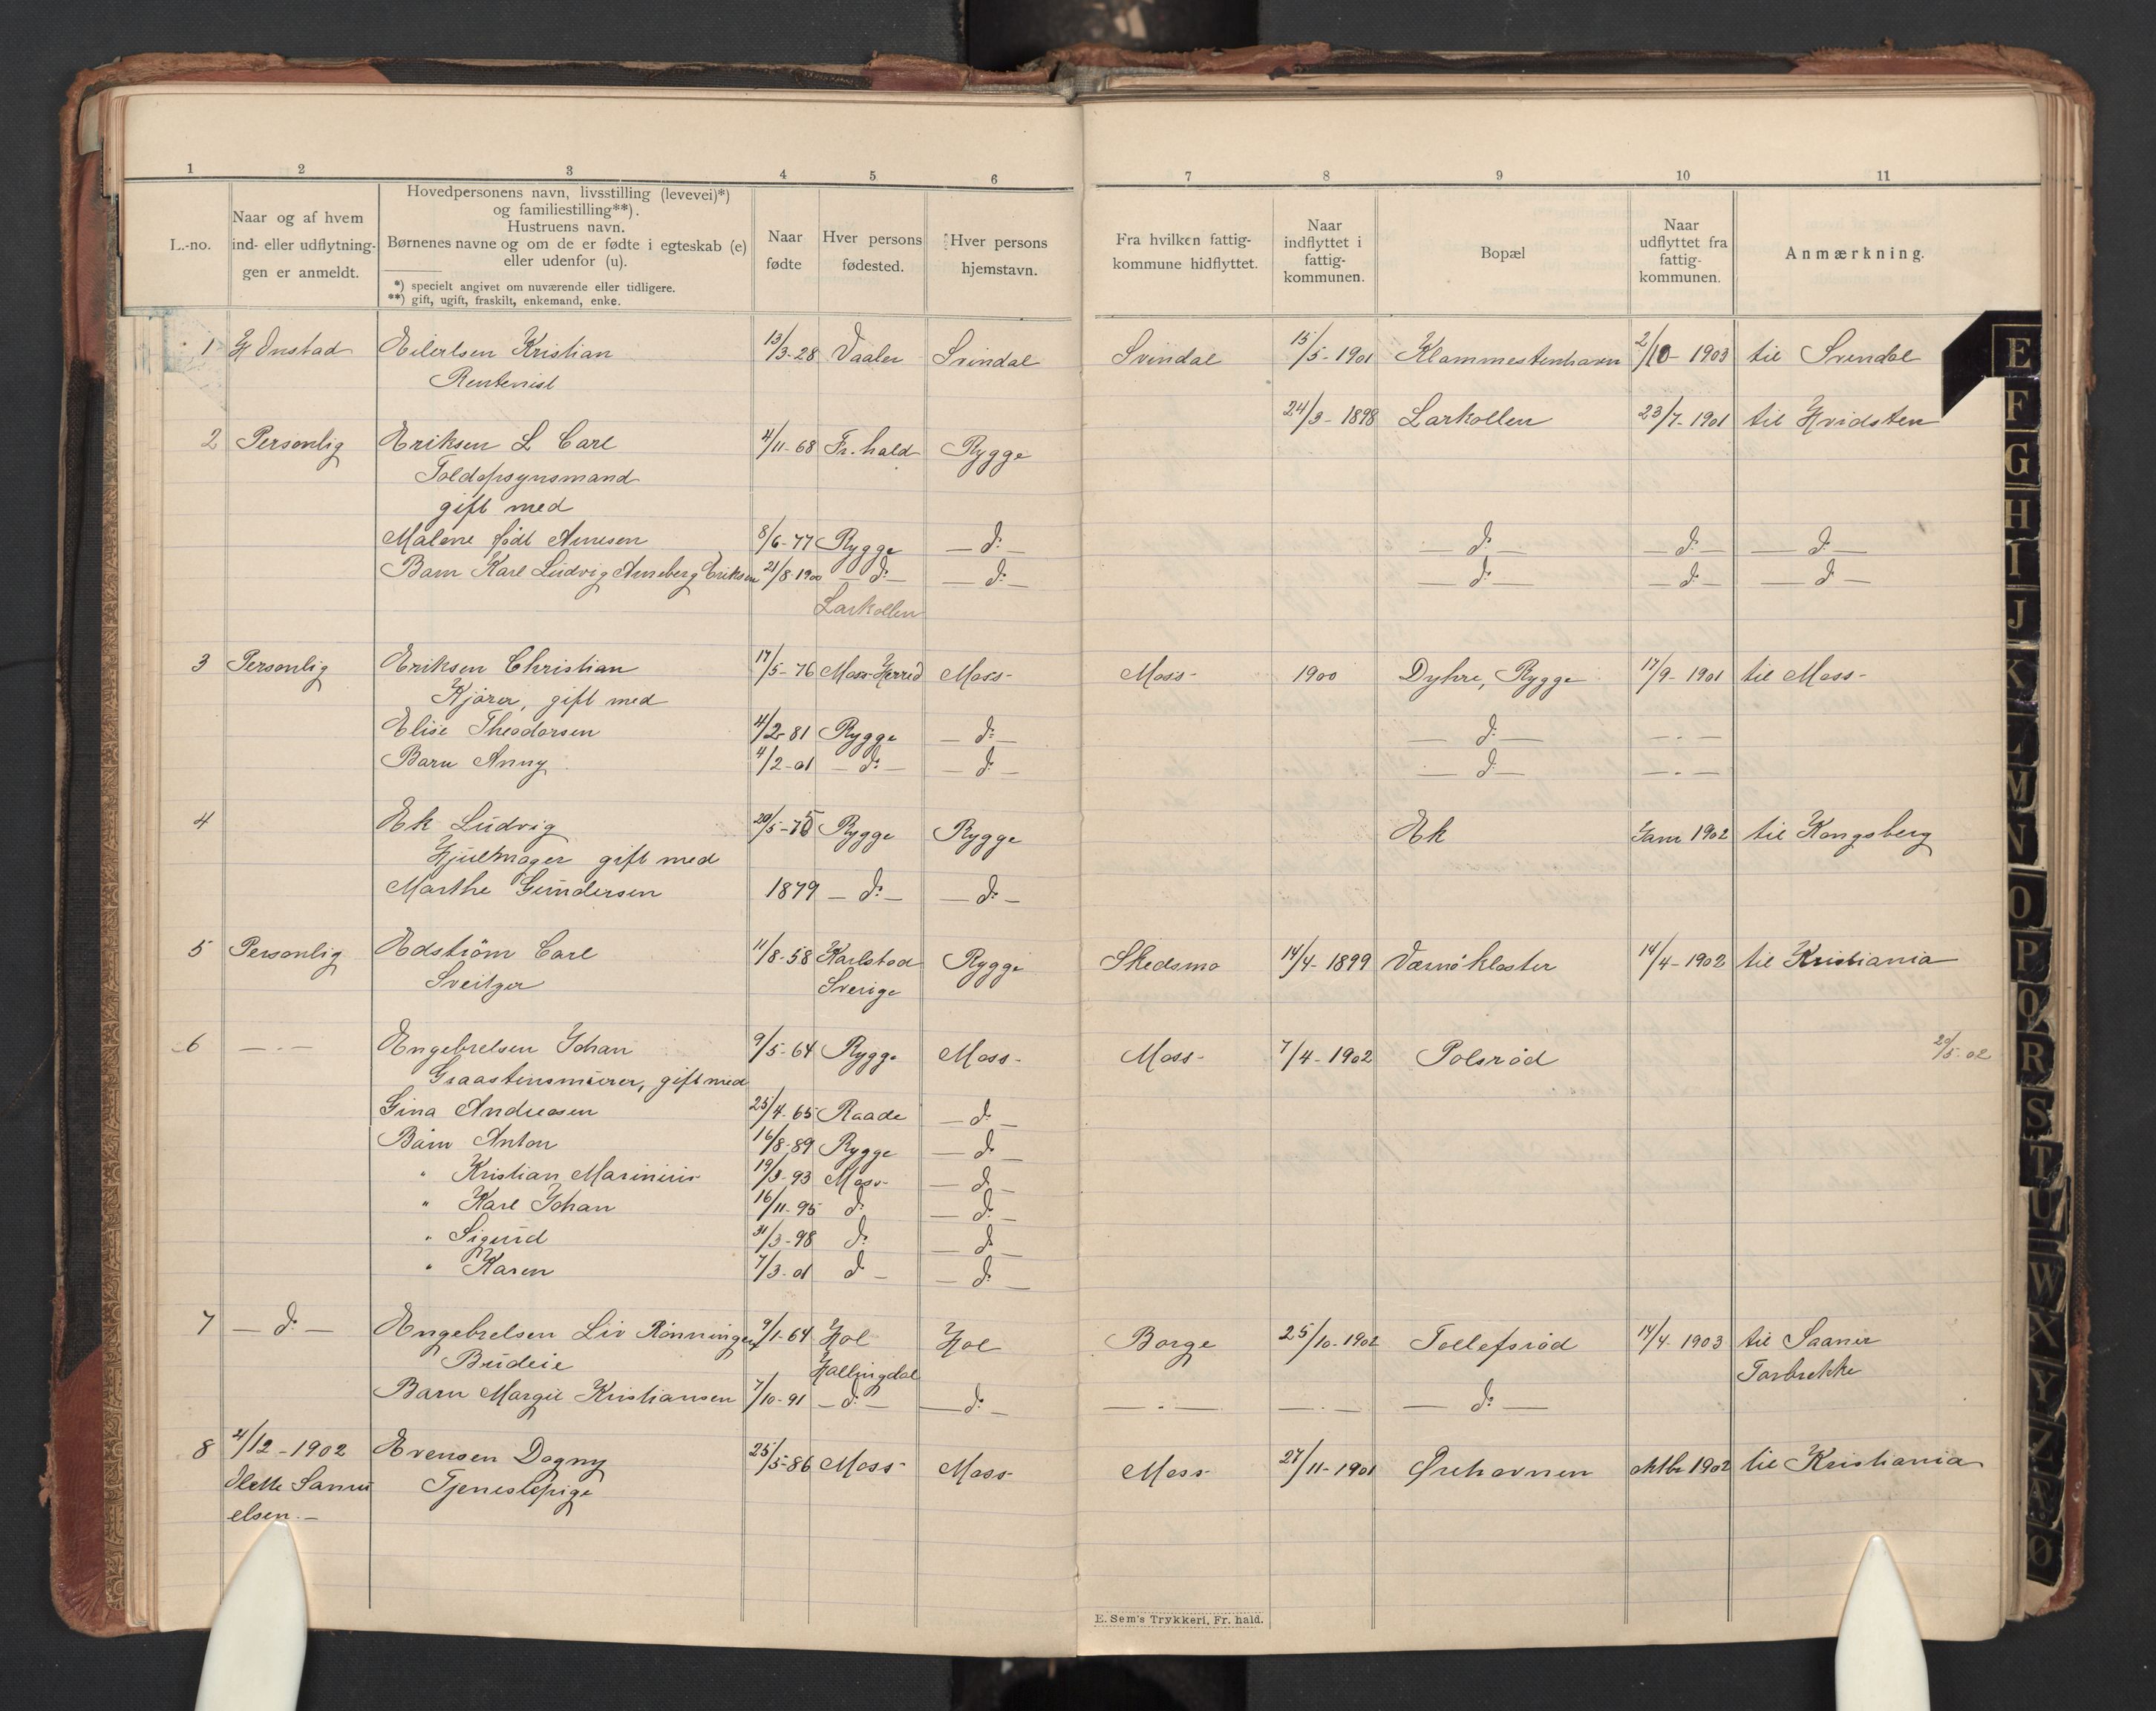 1 2 3 4 5 6 7 8 9 10 11
L.-no.
Naar og af hvem
ind- eller udflytnin-
gen er anmeldt.
Hovedpersonens navn, livsstilling (levevei)*)
og familiestilling**).
Hustruens navn.
Børnenes navne og om de er fødte i egteskab (e)
eller udenfor (u).
*) specielt angivet om nuværende eller tidligere.
**) gift, ugift, fraskilt, enkemand, enke.
Naar
fødte
Hver persons
fødested.
Hver persons
hjemstavn.
Fra hvilken fattig-
kommune hidflyttet.
Naar
indflyttet i
fattig-
kommunen.
Bopæl
Naar
udflyttet fra
fattig-
kommunen.
Anmærkning.
1 H Onstad Eilertsen Kristian 13/3-28 Vaaler Svindal Svindal 15/5-1901 Klammestenhavn 2/10-1903 til Svindal
Rentenist
24/3-1898 Larkollen 23/7-1901 til Hvidsten
2 Personlig Eriksen L Carl 4/11-68 Fr.hald Rygge
Toldopsynsmand
gift med
Malene født Arnesen 8/6-77 Rygge — d: — — d: — — d: — — d: —
Barn Karl Ludvig Arneberg Eriksen 21/8-1900 — d: — — d: — — d: — — d: — — d: —
Larkollen
3 Personlig Eriksen Christian 17/5-76 Moss Herred Moss- Moss- 1900 Dyhre, Rygge 17/9-1901 til Moss-
Kjører, gift med
Elise Theodorsen 4/2-81 Rygge — d: — — d: — — „ —
Barn Anny 4/2-01 — d: — — d: — — d: — — „ —
4 Ek Ludvig 20/5-75 Rygge Rygge Ek Janr 1902 til Kongsberg
Hjulmager gift med
Marthe Gundersen 1879 — d: — — d: —
5 Personlig Edström Carl 11/8-58 Karlstad Rygge Skedsmo 14/4-1899 Værnø kloster 14/4-1902 til Kristiania
Sveitzer Sverige
6 — „ — Engebretsen Johan 9/5-64 Rygge Moss- Moss- 7/4-1902 Polsrød 20/5-02
Graastensmurer, gift med
Gina Andreasen 25/4-65 Raade — d: —
Barn Anton 16/8-89 Rygge — d: —
" Kristian Marinius 19/3-93 Moss- — d: —
" Karl Johan 16/11-95 d: — d: —
" Sigurd 31/3-98 d: — d: —
" Karen 7/3-01 d — — d: —
7 — d: — Engebretsen Liv Rønningen 9/1-64 Hol Hol Borge 25/10-1902 Tollefsrød 14/4-1903 til Saaner
Budeie Hallingdal Torbrekke
Barn Margit Kristiansen 7/10-91 — d: — — d: — — „ — — „ — — d: —
8 4/12-1902 Evensen Dagny 25/5-86 Moss- Moss- Moss- 27/11-1901 Ørehavnen Oktbr 1902 til Kristiania
Olette Samu Tjenestepige
elsen.—
E. Sem's Trykkeri, Fr. hald.
E
F
G
H
I
J
K
L
M
N
O
P
Q
R
S
T
U
W
X
Y
Z
Æ
Ø